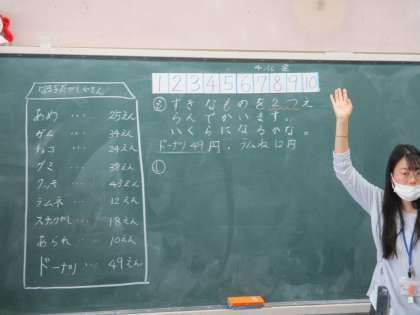 だがしやさん
あめ … 25えん
ガム … 34えん
チョコ … 24えん
グミ … 38えん
クッキー … 43えん
ラムネ … 12えん
スナックがし … 18えん
あられ … 10えん
ドーナツ … 49えん
1 2 3 4 5 6 7 8 9 10
すきなものを2つえ
らんでかいます。
いくらになるかな。
ドーナツ49円、ラムネ12円